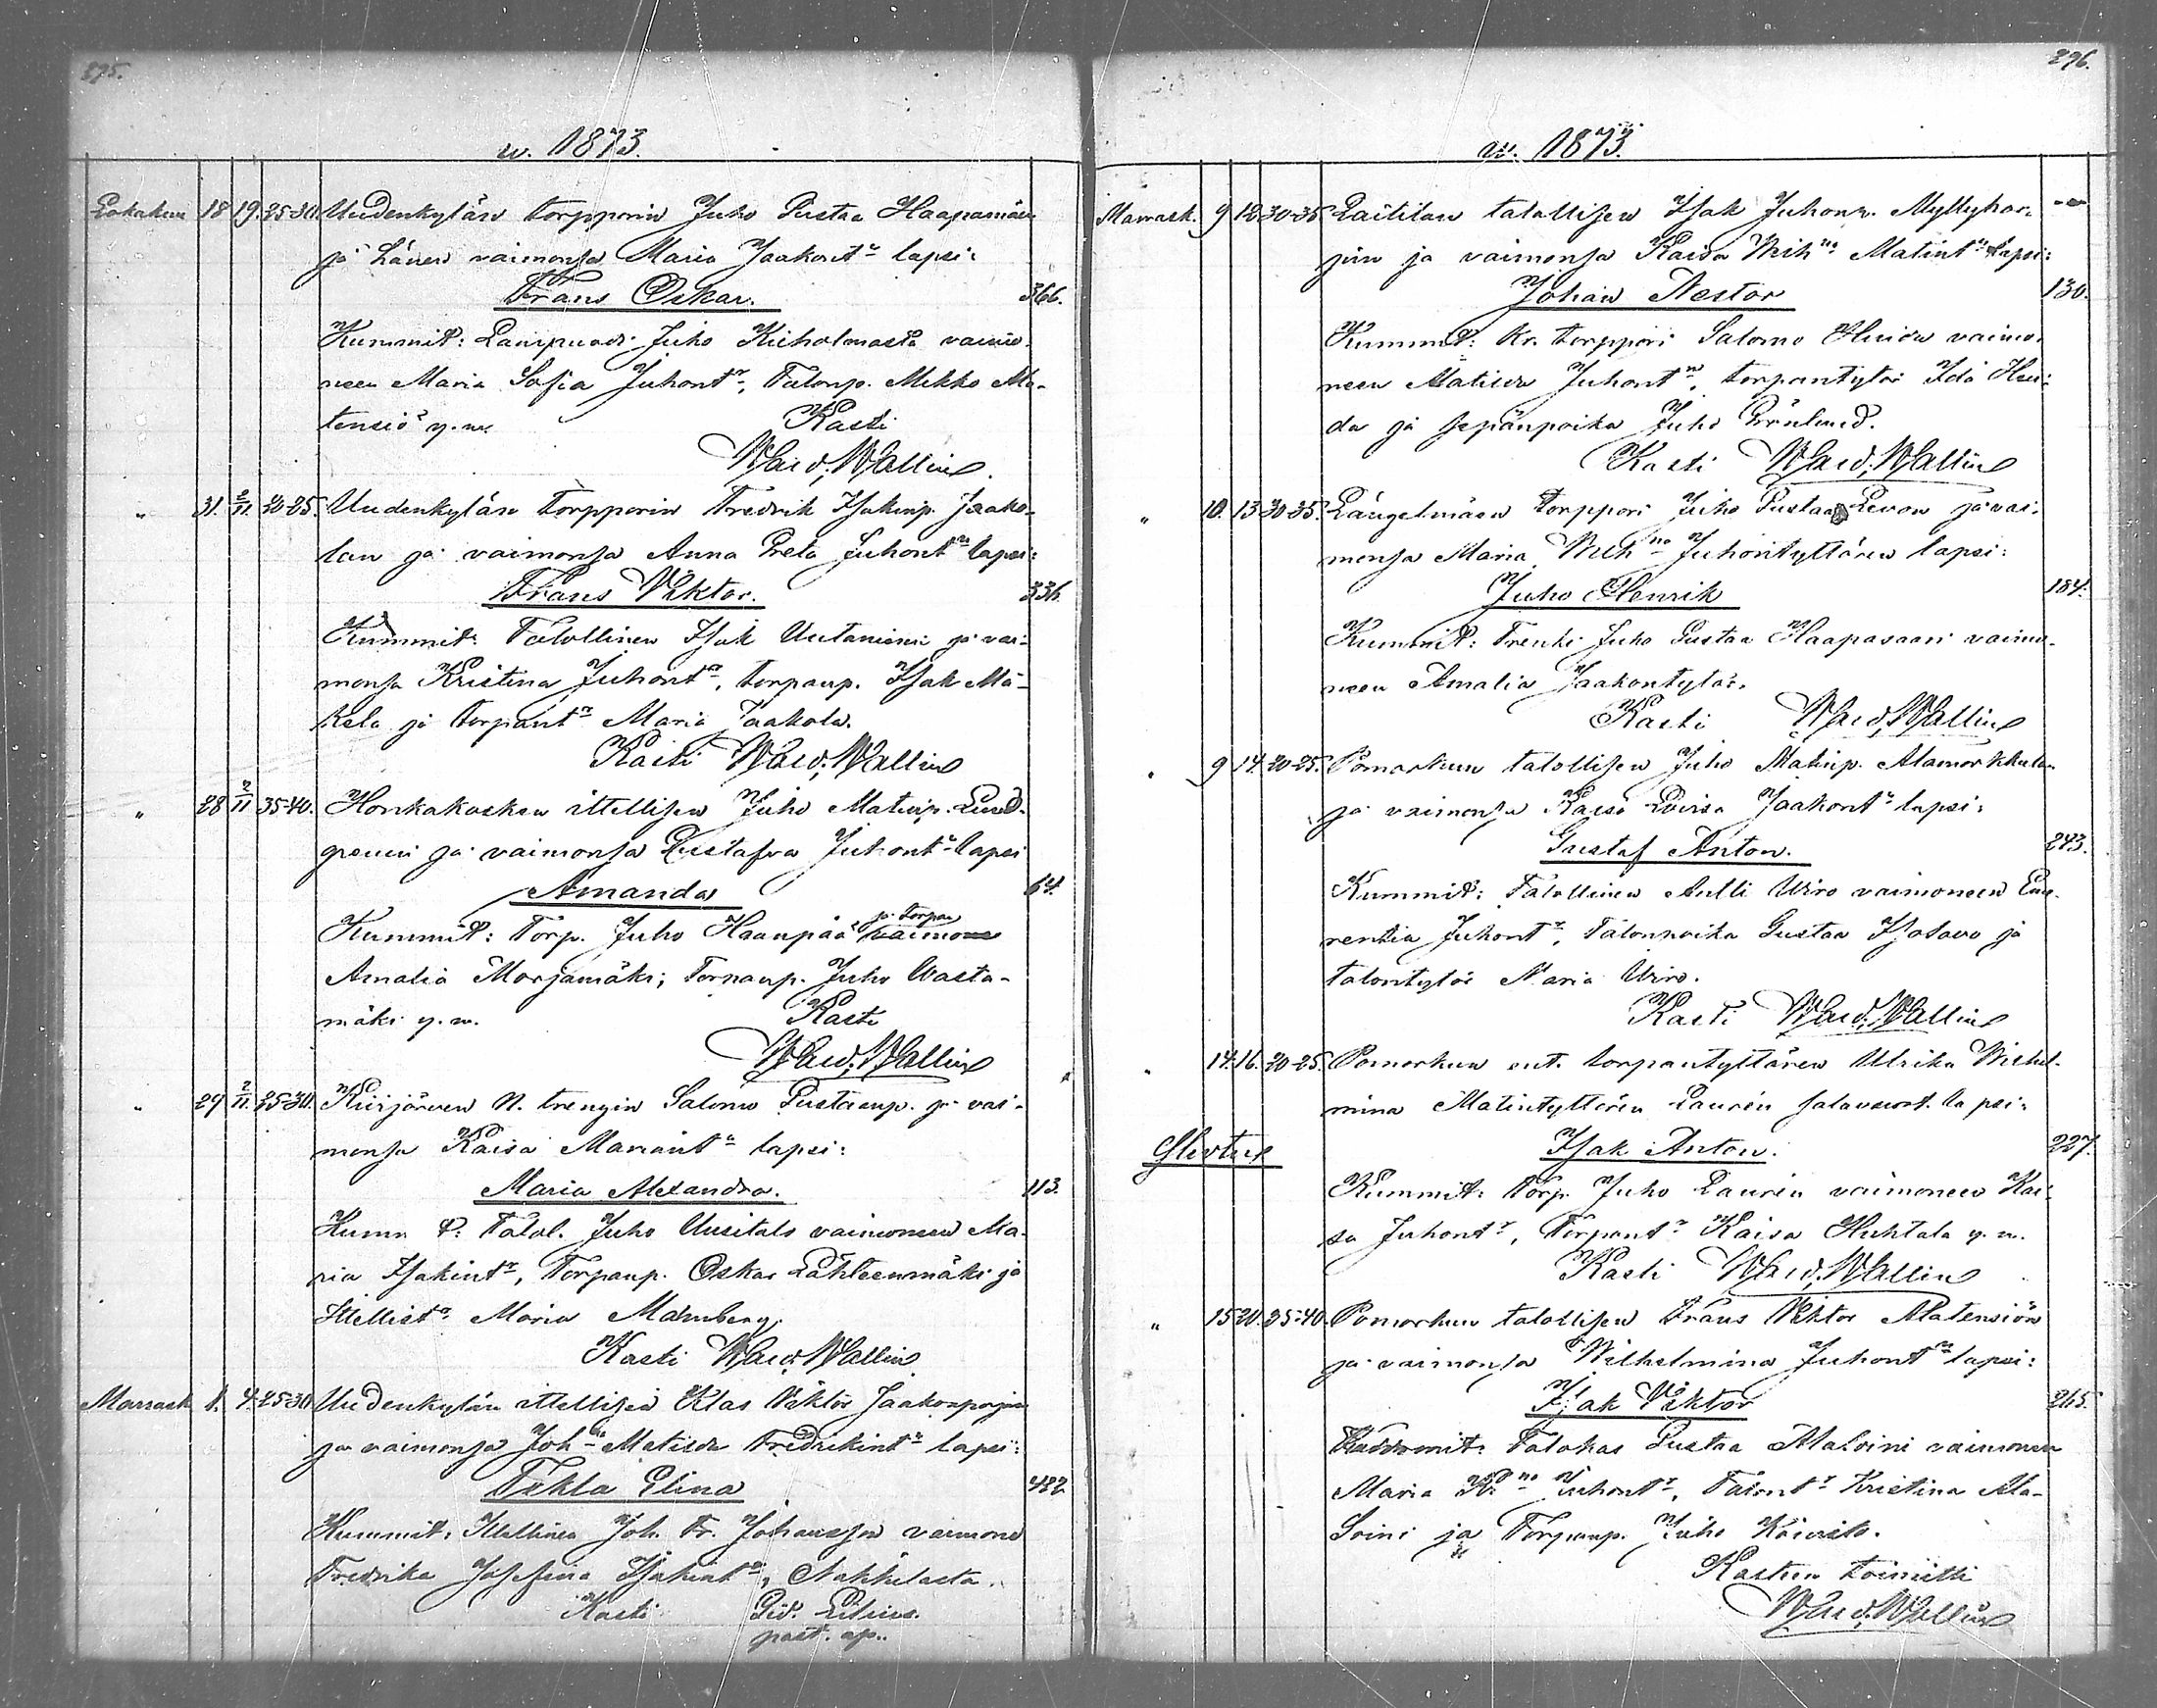 295.
w. 1873.
Lokakuu 18 19. 25-30. Uudenkylän torpparin Juho Kustaa Haapamäen
ja hänen vaimonsa Maria Jaakontn lapsi:
Frans Oskar. 366.
Kummit: Lampuodi Juho Kiiholmasta vaimo-
neen Maria Sofia Juhontr, Talonp. Mikko Ala-
tensiö y.m. Kasti
Wald. Wallin.
" 31. 2/11. 20-25. Uudenkylän torpparin Fredrik Isakinp. Jaako-
lan ja vaimonsa Anna Greta Juhontn lapsi:
Frans Viktor. 336.
Kummit: Talollinen Isak Uutaniemi ja vai-
monsa Kristina Juhontr, torpanp. Isak Mä-
kelä ja torpantr Maria Jaakola.
Kasti Wald. Wallin
" 28 2/11 35-40. Honkakosken ittellisen Juho Matinp. Lund-
grenin ja vaimonsa Kustafva Juhontn lapsi
Amanda 64.
ja torpan
Kummit: Torp. Juho Haanpää vaimone
Amalia Morjamäki; Torpanp. Juho Wasta-
mäki y.m. Kasti
Wald. Wallin
" 29 2/11. 25-30. Kiirjärven N. trengin Salomo Kustaanp. ja vai-
monsa Kaisa Mariant n lapsi:
Maria Alexandra. 113.
Kummit: Talol. Juho Uusitalo vaimoneen Ma-
ria Isakintr, Torpanp. Oskar Lähteenmäki ja
Ittellistr Maria Malmberg.
Kasti Wald. Wallin
Marrask 1. 4. 25-30 Uudenkylän ittellisen Klas Viktor Jaakonpojan
ja vaimonsa Johna Matilda Fredrikintn lapsi:
Tekla Elina 482
Kummit: Itellinen Joh. Fr. Johansson vaimone
Fredrika Josefina Isakintr, Nakkilasta.
Kasti
past. ap.
296.
w. 1873.
Marrask. 9 12. 30-35 Laitilan talollisen Isak Juhonp. Myllyhar-
jun ja vaimonsa Kaisa Wilhna Matintn lapsi:
Johan Nestor 130.
Kummit: Kr. torppari Salomo vaimo-
neen Matilda Juhontr, torpantytär Ida Hei-
da ja sepänpoika Juho Grönlund.
Kasti Wald. Wallin
" 10. 13 30-35. Längelmäen torppari Juho Kustaa Levon ja vai-
monsa Maria Wilhna Juhontyttären lapsi:
Juho Henrik 184.
Kummit: Trenki Juho Kustaa Haapasaari vaimo-
neen Amalia Jaakontytär.
Kasti Wald. Wallin
" 9 14. 20-25. Pomarkun talollisen Juho Matinp. Alamorkkulan
ja vaimonsa Kaisa Lovisa Jaakontn lapsi:
Gustaf Anton. 243.
Kummit: Talollinen Antti Uiro vaimoneen Lau-
rentia Juhontr, Talonpoika Gustaa Isotavo ja
talontytär Maria Uiro.
Kasti Wald. Wallin
" 14. 16. 20-25. Pomarkun ent. torpantyttären Ulrika Wilhel-
mina Matintyttären Laurén salavuot. lapsi:
Isak Anton. 227.
Kummit: Torp. Juho Laurén vaimoneen Kai-
sa Juhontr, Torpantr Kaisa Huhtala y.m.
Kasti Wald. Wallin
" 15 20. 35-40. Pomarkun talollisen Frans Viktor Alatensiön
ja vaimonsa Wilhelmina Juhontn lapsi:
Isak Viktor 265.
Kummit: Talokas Kustaa Alasoini vaimoneen
Maria Juhontr, Talontr Kristina Ala-
Soini ja Torpanp. Juho Koivisto.
Kasteen toimitti
Wald. Wallin